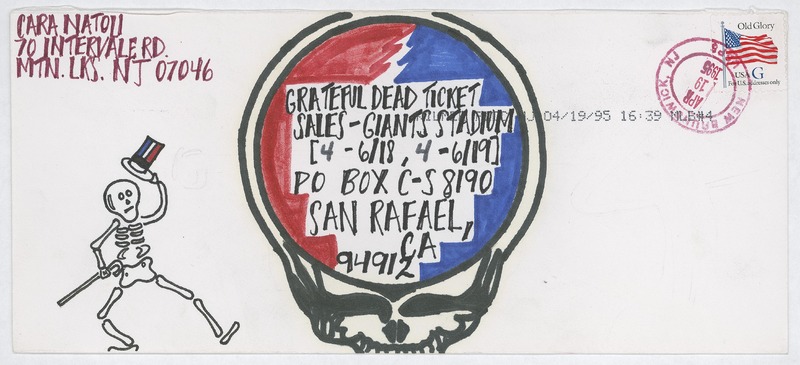 CARA NATOLI
70 INTERVALE RD.
MTN. LKS. NJ 07046
Old Glory
USA G
For U.S. addresses only
NEW BRUNSWICK, NJ
APR 19 1995
NJ 04/19/95 16:39 MLB#4
GRATEFUL DEAD TICKET
SALES-GIANTS STADIUM
[4-6/18, 4-6/19]
PO BOX C-S 8190
SAN RAFAEL,
CA
94912